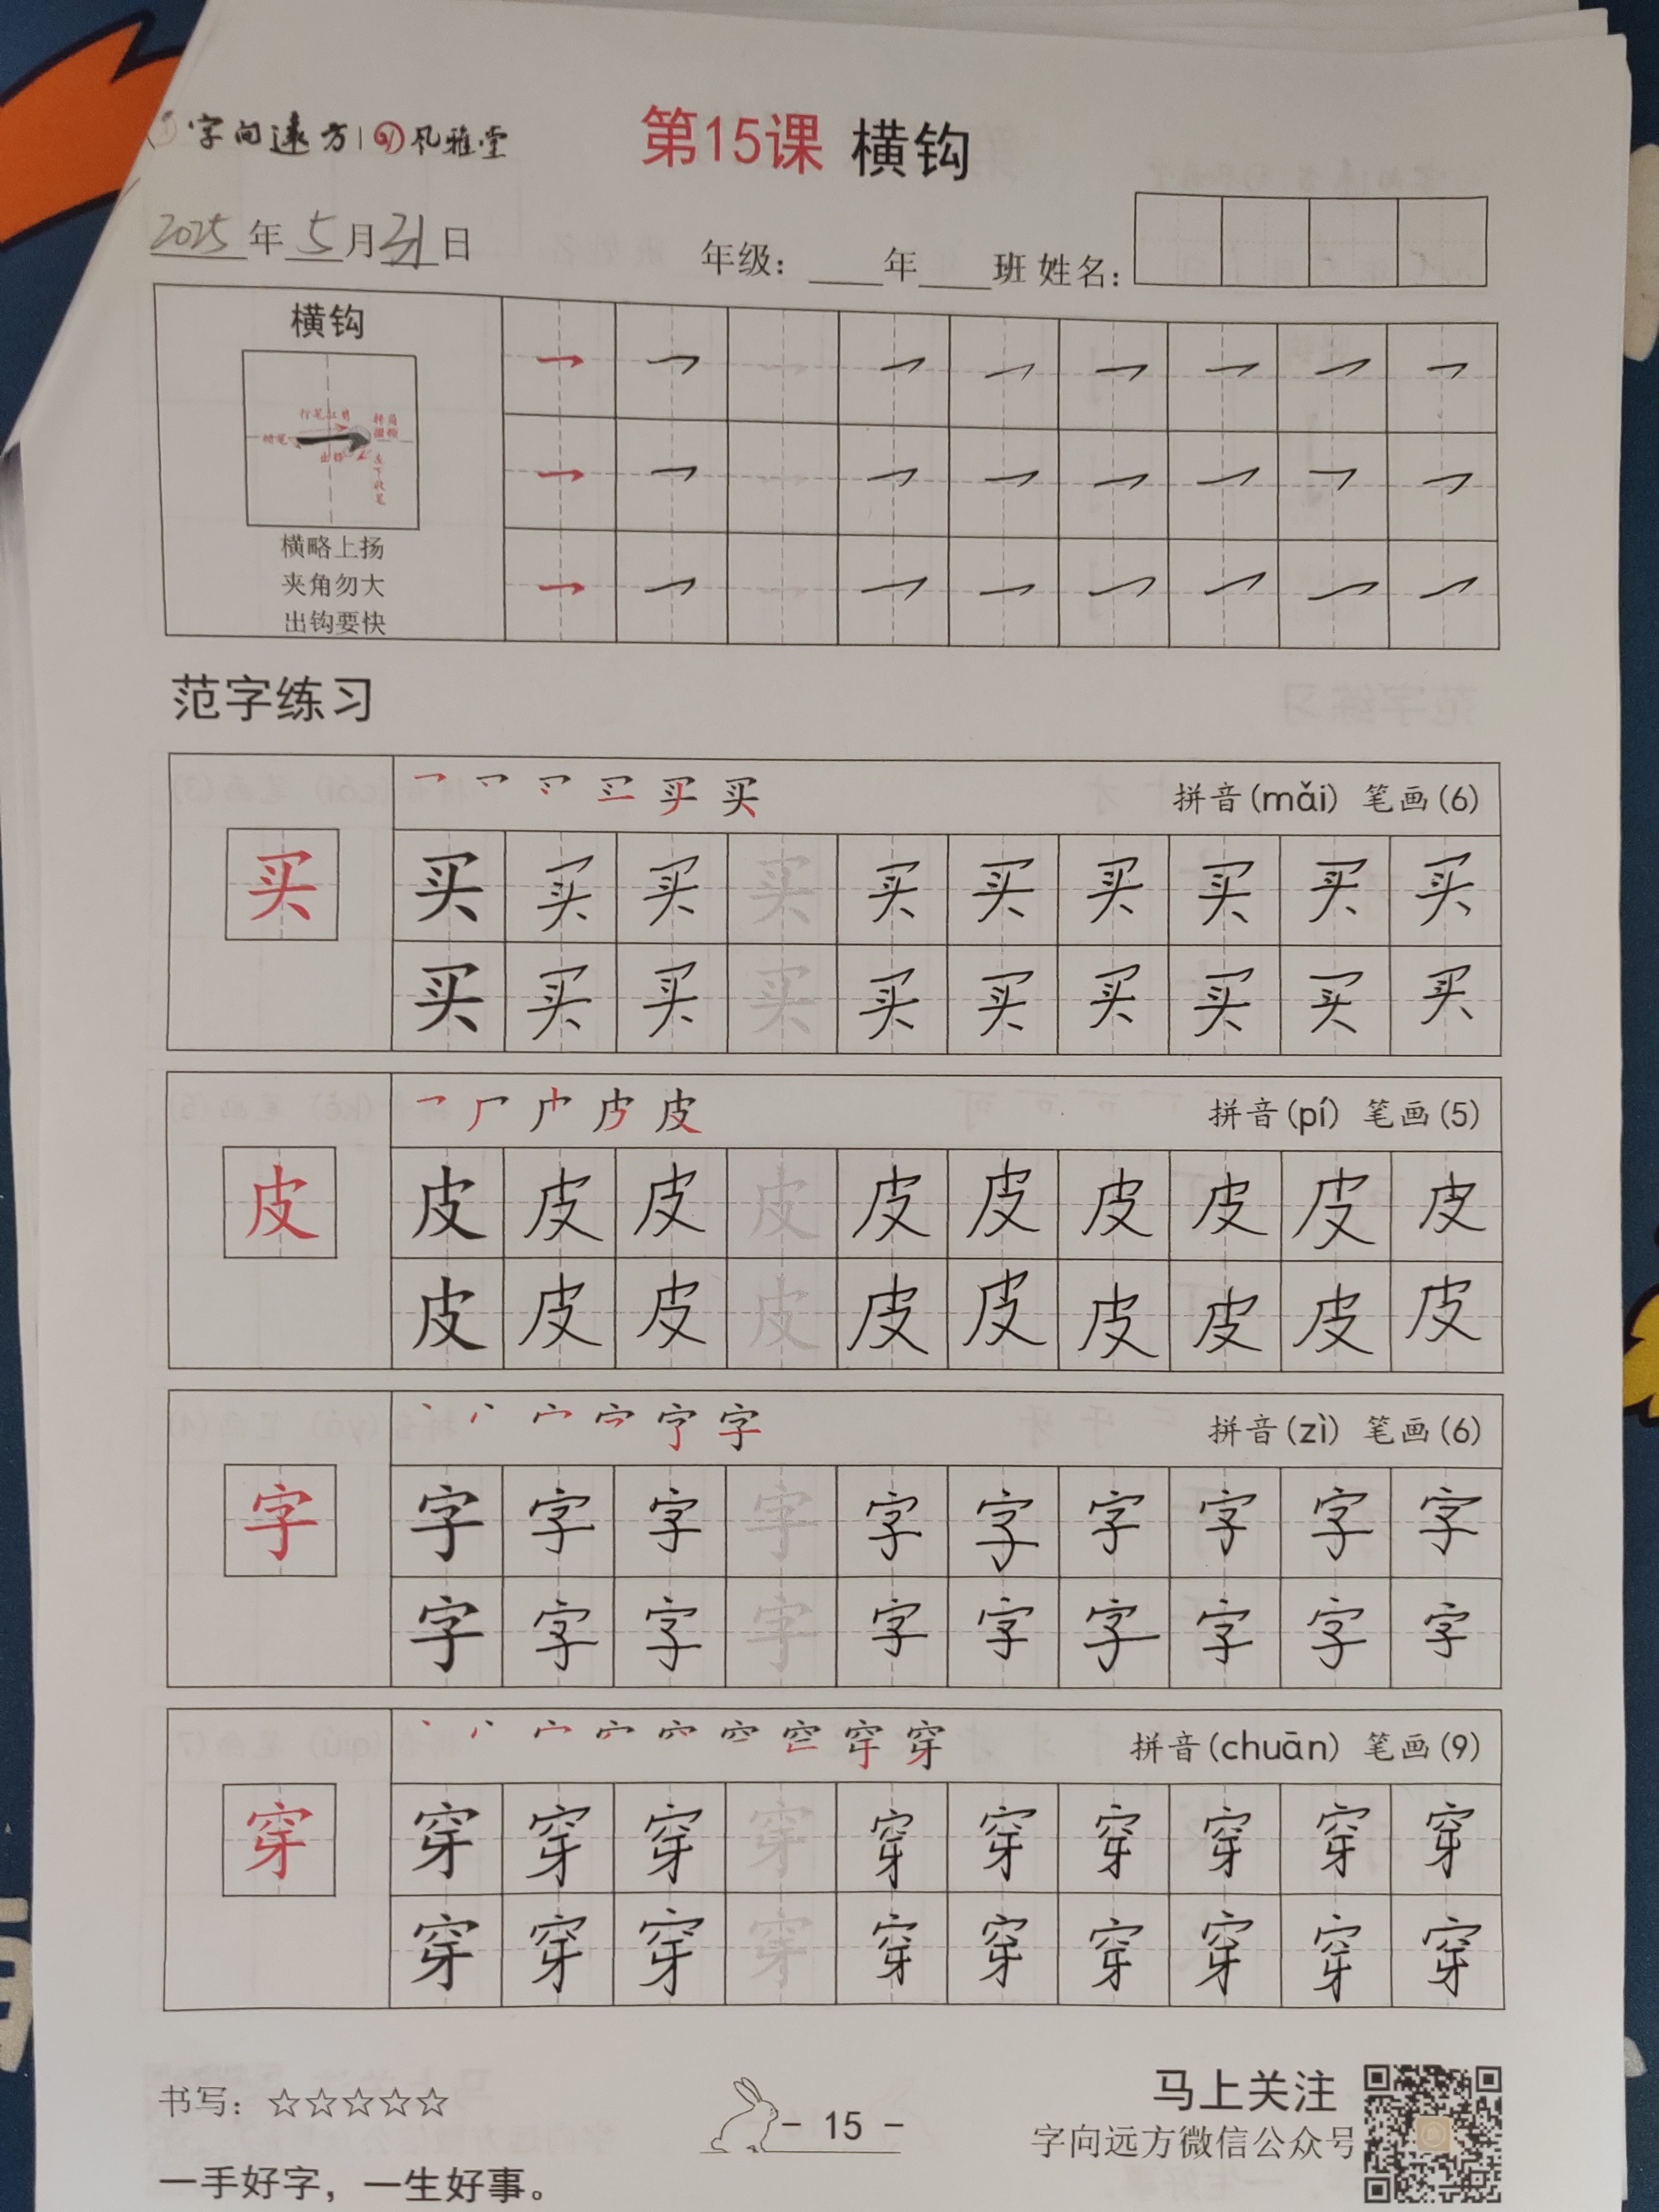 字向远方 风雅堂
第15课 横钩
2025年5月31日 年级：____年____班 姓名：
横钩
行笔上斜
转角
顿笔
出锋
左下收笔
横略上扬
夹角勿大
出钩要快
范字练习
拼音(mǎi) 笔画(6)
买 买 买 买 买 买 买 买 买 买 买
买 买 买 买 买 买 买 买 买 买
拼音(pí) 笔画(5)
皮 皮 皮 皮 皮 皮 皮 皮 皮 皮 皮
皮 皮 皮 皮 皮 皮 皮 皮 皮 皮
拼音(zì) 笔画(6)
字 字 字 字 字 字 字 字 字 字 字
字 字 字 字 字 字 字 字 字 字
拼音(chuān) 笔画(9)
穿 穿 穿 穿 穿 穿 穿 穿 穿 穿 穿
穿 穿 穿 穿 穿 穿 穿 穿 穿 穿
书写：☆☆☆☆☆
- 15 -
马上关注
字向远方微信公众号
一手好字，一生好事。